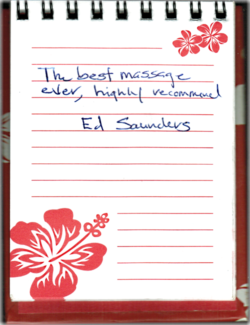 The best massage
ever, highly recommend
Ed Saunders